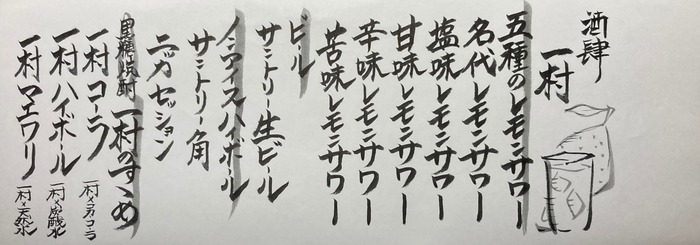 酒肆
一村
五種のレモンサワー
名代レモンサワー
塩味レモンサワー
甘味レモンサワー
辛味レモンサワー
苦味レモンサワー
ビール
サントリー生ビール
ノンアイスハイボール
サントリー角
ニッカ セッション
黒糖焼酎 一村のすゝめ
一村コーラ 一村×コカコーラ
一村ハイボール 一村×炭酸水
一村マエワリ 一村×天然水